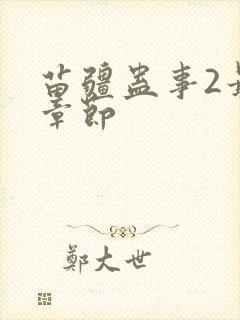 苗疆蛊事2
章節
鄭大世